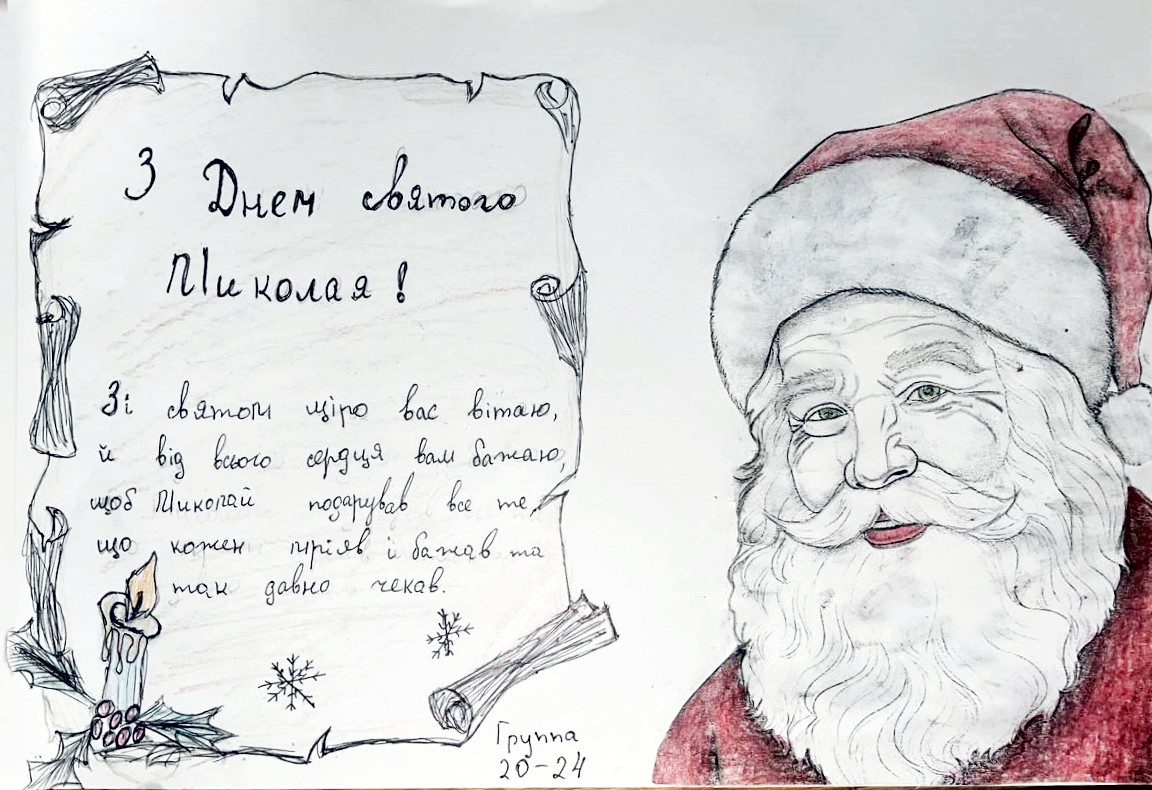 З Днем святого
Миколая!
Зі святом щіро вас вітаю,
й від всього сердця вам бажаю,
щоб Миколай подарував все те,
що кожен мріяв і бажав та
так давно чекав.
Группа
20-24